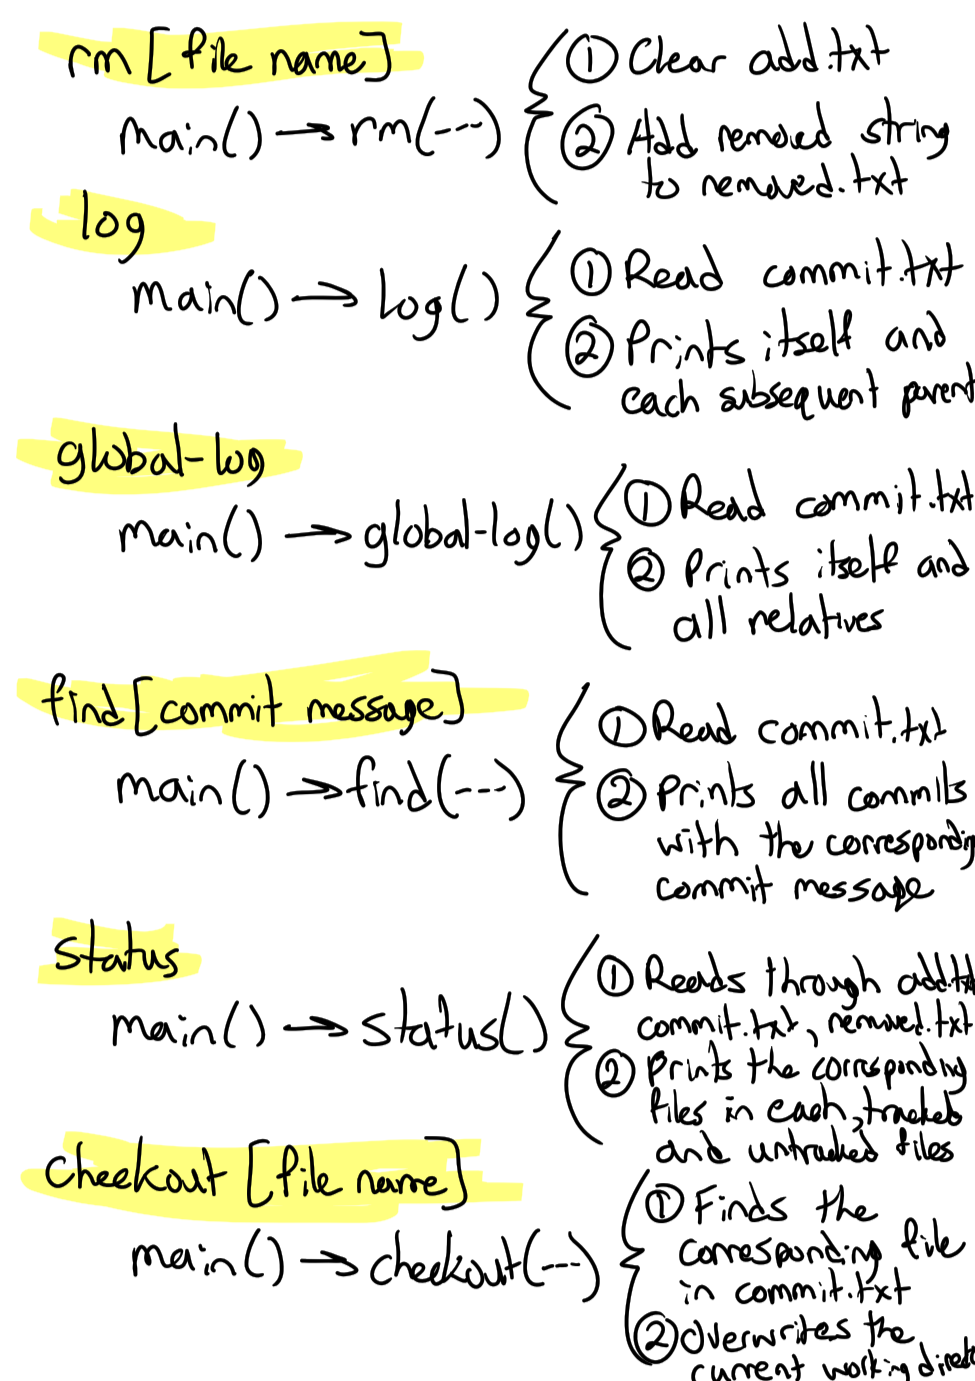 rm [file name]
main() → rm(---)
① Clear add.txt
② Add removed string
to removed.txt
log
main() → log()
① Read commit.txt
② Prints itself and
each subsequent parent
global-log
main() → global-log()
① Read commit.txt
② Prints itself and
all relatives
find [commit message]
main() → find(---)
① Read commit.txt
② Prints all commits
with the corresponding
commit message
status
main() → status()
① Reads through add.txt
commit.txt, removed.txt
② Prints the corresponding
files in each, tracked
and untracked files
checkout [file name]
main() → checkout(---)
① Finds the
corresponding file
in commit.txt
② Overwrites the
current working